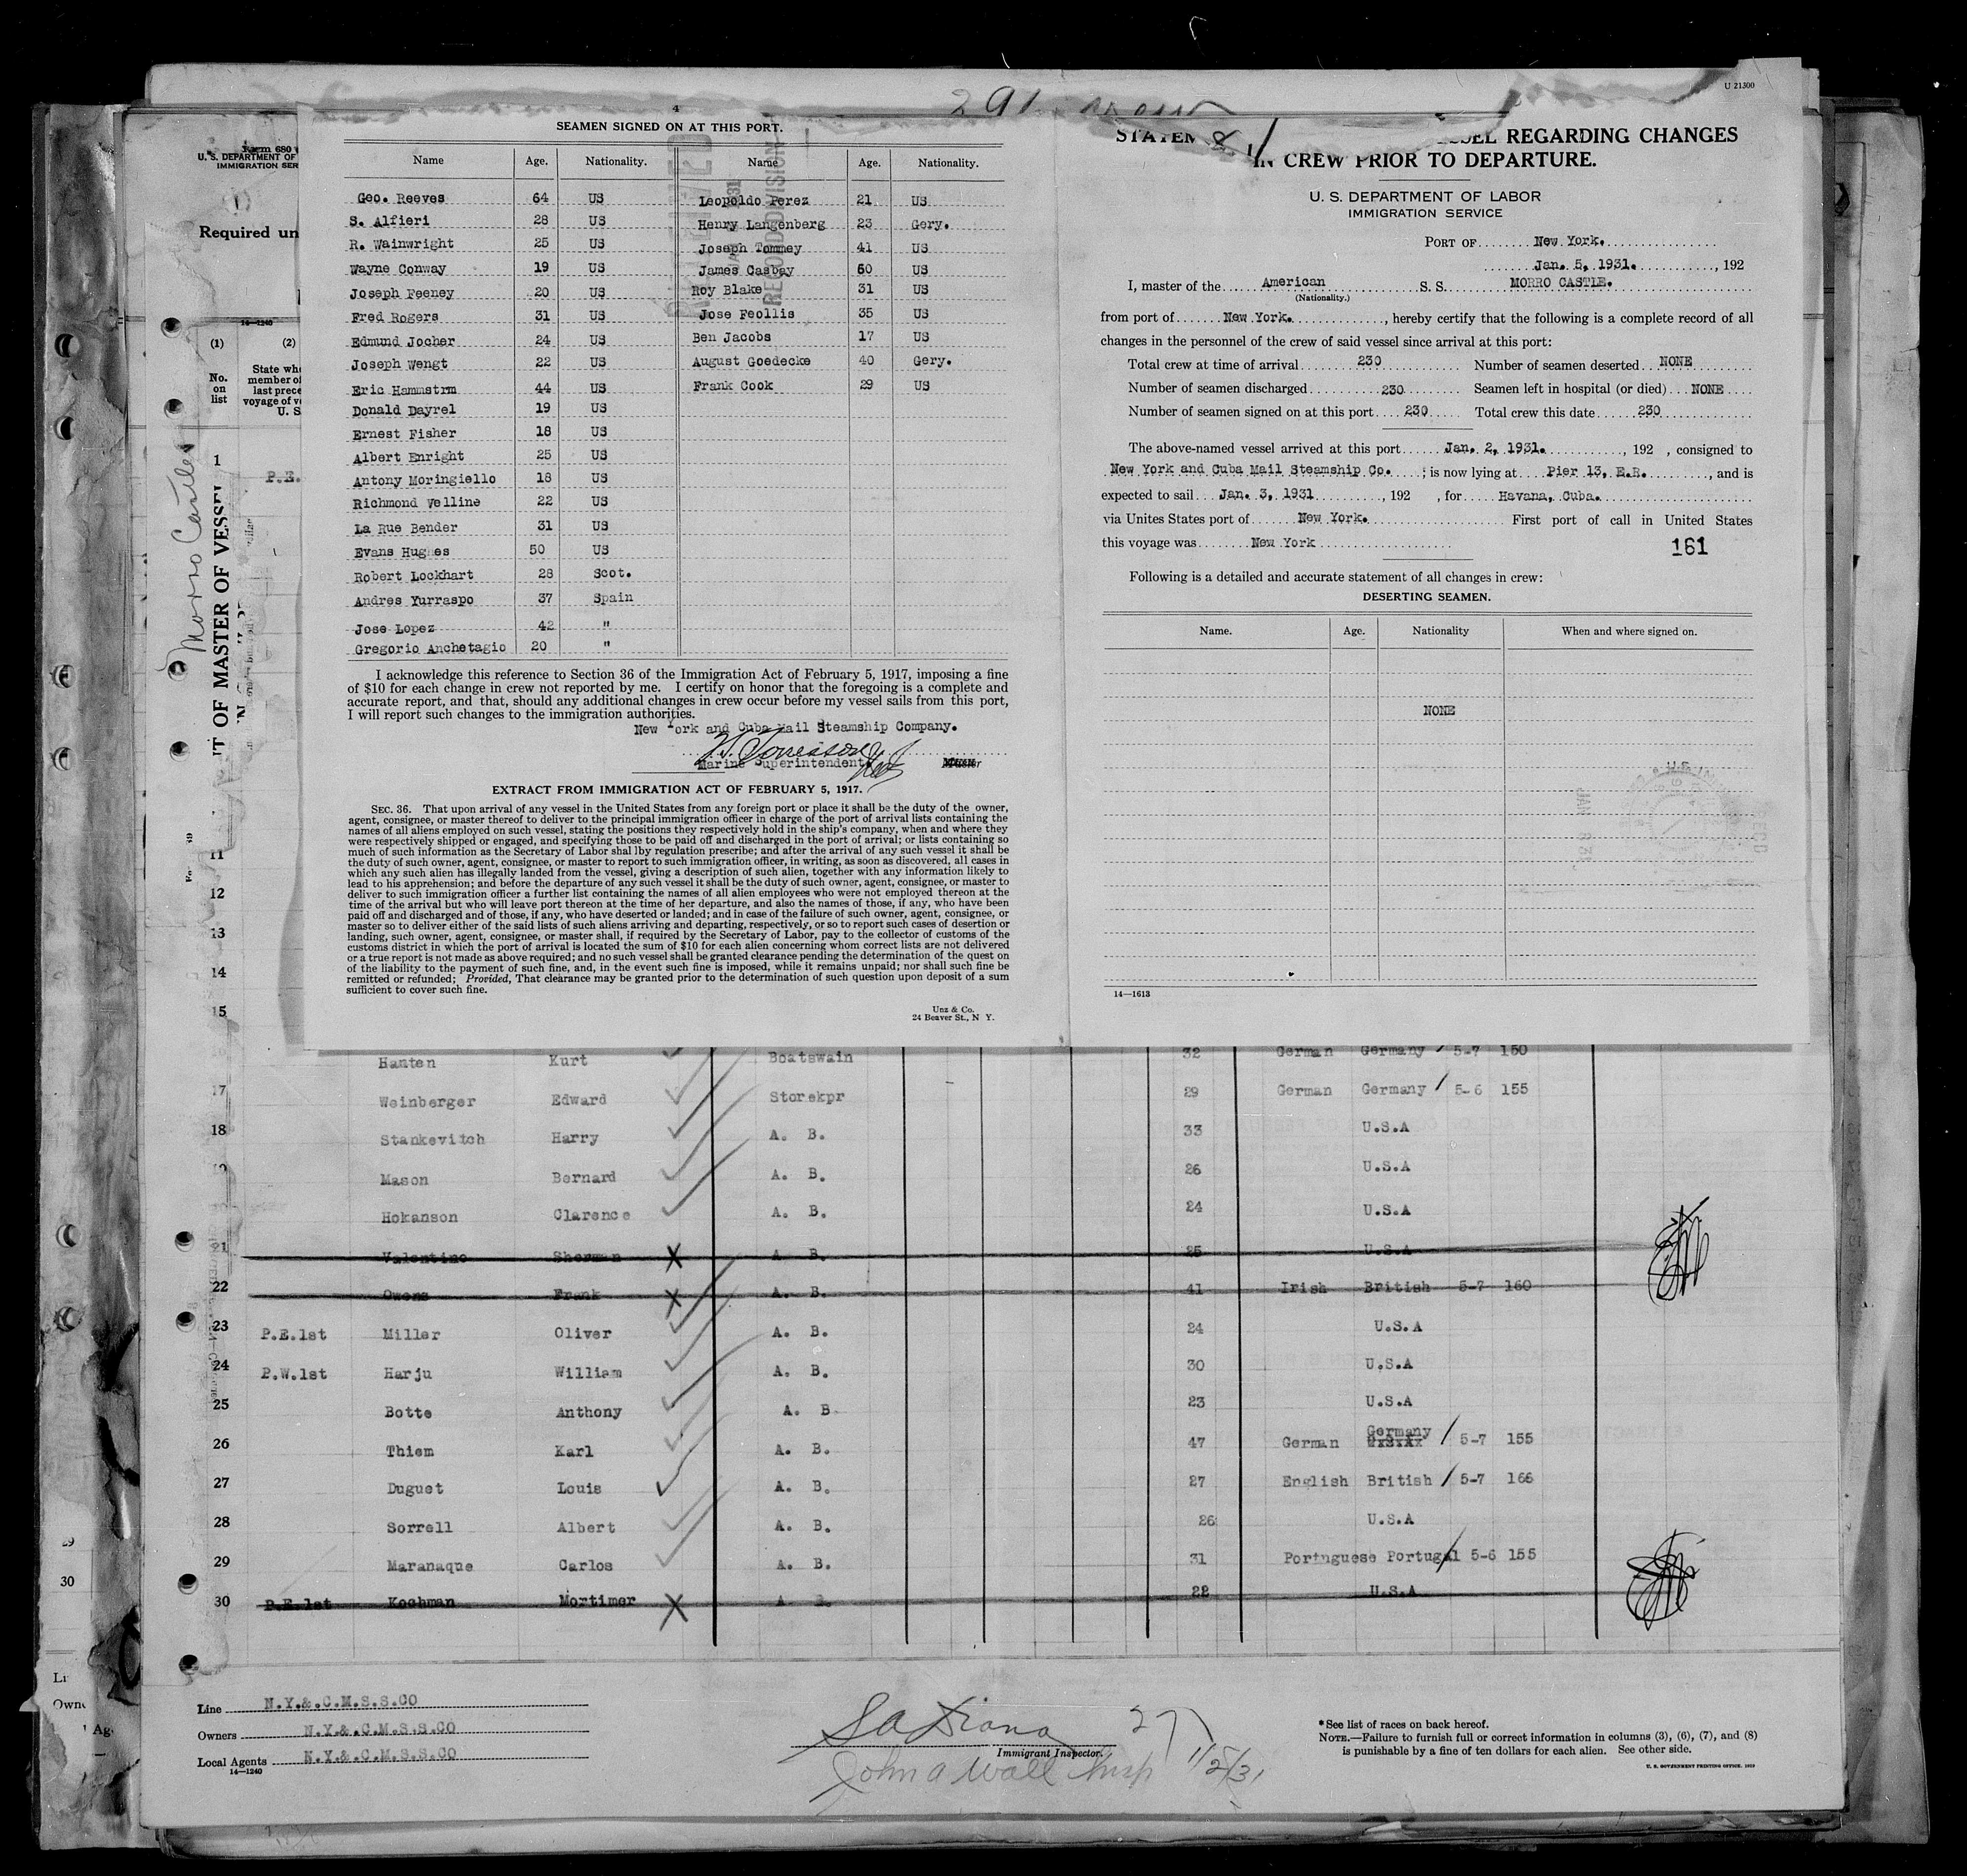 U 21300
291
4
SEAMEN SIGNED ON AT THIS PORT.
Name Age. Nationality. Name Age. Nationality.
Geo. Reeves 64 US Leopoldo Perez 21 US
S. Alfieri 28 US Henry Langenberg 23 Gery.
R. Wainwright 25 US Joseph Tommey 41 US
Wayne Conway 19 US James Casbay 50 US
Joseph Feeney 20 US Roy Blake 31 US
Fred Rogers 31 US Jose Feollis 35 US
Edmund Jocher 24 US Ben Jacobs 17 US
Joseph Wengt 22 US August Goedecke 40 Gery.
Eric Hammstrm 44 US Frank Cook 29 US
Donald Dayrel 19 US
Ernest Fisher 18 US
Albert Enright 25 US
Antony Moringiello 18 US
Richmond Velline 22 US
La Rue Bender 31 US
Evans Hughes 50 US
Robert Lockhart 28 Scot.
Andres Yurraspo 37 Spain
Jose Lopez 42 "
Gregorio Anchetagio 20 "
I acknowledge this reference to Section 36 of the Immigration Act of February 5, 1917, imposing a fine
of $10 for each change in crew not reported by me. I certify on honor that the foregoing is a complete and
accurate report, and that, should any additional changes in crew occur before my vessel sails from this port,
I will report such changes to the immigration authorities.
New York and Cuba Mail Steamship Company.
Marine Superintendent
EXTRACT FROM IMMIGRATION ACT OF FEBRUARY 5, 1917.
SEC. 36. That upon arrival of any vessel in the United States from any foreign port or place it shall be the duty of the owner,
agent, consignee, or master thereof to deliver to the principal immigration officer in charge of the port of arrival lists containing the
names of all aliens employed on such vessel, stating the positions they respectively hold in the ship's company, when and where they
were respectively shipped or engaged, and specifying those to be paid off and discharged in the port of arrival; or lists containing so
much of such information as the Secretary of Labor shal lby regulation prescribe; and after the arrival of any such vessel it shall be
the duty of such owner, agent, consignee, or master to report to such immigration officer, in writing, as soon as discovered, all cases in
which any such alien has illegally landed from the vessel, giving a description of such alien, together with any information likely to
lead to his apprehension; and before the departure of any such vessel it shall be the duty of such owner, agent, consignee, or master to
deliver to such immigration officer a further list containing the names of all alien employees who were not employed thereon at the
time of the arrival but who will leave port thereon at the time of her departure, and also the names of those, if any, who have been
paid off and discharged and of those, if any, who have deserted or landed; and in case of the failure of such owner, agent, consignee, or
master so to deliver either of the said lists of such aliens arriving and departing, respectively, or so to report such cases of desertion or
landing, such owner, agent, consignee, or master shall, if required by the Secretary of Labor, pay to the collector of customs of the
customs district in which the port of arrival is located the sum of $10 for each alien concerning whom correct lists are not delivered
or a true report is not made as above required; and no such vessel shall be granted clearance pending the determination of the quest on
of the liability to the payment of such fine, and, in the event such fine is imposed, while it remains unpaid; nor shall such fine be
remitted or refunded; Provided, That clearance may be granted prior to the determination of such question upon deposit of a sum
sufficient to cover such fine.
Unz & Co.
24 Beaver St., N Y.
STATEM SSEL REGARDING CHANGES
IN CREW PRIOR TO DEPARTURE.
U. S. DEPARTMENT OF LABOR
IMMIGRATION SERVICE
PORT OF New York.
Jan. 5, 1931. , 192
I, master of the American S. S. MORRO CASTLE.
(Nationality.)
from port of New York. , hereby certify that the following is a complete record of all
changes in the personnel of the crew of said vessel since arrival at this port:
Total crew at time of arrival 230 Number of seamen deserted NONE
Number of seamen discharged 230 Seamen left in hospital (or died) NONE
Number of seamen signed on at this port 230 Total crew this date 230
The above-named vessel arrived at this port Jan. 2, 1931. , 192 , consigned to
New York and Cuba Mail Steamship Co. ; is now lying at Pier 13, E.R. , and is
expected to sail Jan. 3, 1931 , 192 , for Havana, Cuba.
via Unites States port of New York. First port of call in United States
this voyage was New York
161
Following is a detailed and accurate statement of all changes in crew:
DESERTING SEAMEN.
Name. Age. Nationality When and where signed on.
NONE
14—1613
Form 680
U. S. DEPARTMENT OF
IMMIGRATION SER
Required un
14—1240
(1) (2)
No. on list
State whe
member of
last prece
voyage of ve
U. S
1 P.E.
Morro Castle
T OF MASTER OF VESSEL
11
12
13
14
15
Hanten Kurt Boatswain 32 German Germany 5-7 150
17 Weinberger Edward Storekpr 29 German Germany 5-6 155
18 Stankevitch Harry A. B. 33 U.S.A
19 Mason Bernard A. B. 26 U.S.A
Hokanson Clarence A. B. 24 U.S.A
21 Valentino Sherman X A. B. 25 U.S.A
22 Owens Frank X A. B. 41 Irish British 5-7 160
23 P.E.1st Miller Oliver A. B. 24 U.S.A
24 P.W.1st Harju William A. B. 30 U.S.A
25 Botte Anthony A. B. 23 U.S.A
26 Thiem Karl A. B. 47 German Germany 5-7 155
27 Duguet Louis A. B. 27 English British 5-7 166
28 Sorrell Albert A. B. 26 U.S.A
29 Maranaque Carlos A. B. 31 Portnguese Portugal 5-6 155
30 P.E.1st Kochman Mortimer X A B. 22 U.S.A
29
30
Line N.Y.&.C.M.S.S.CO
Owners N.Y.&.C.M.S.S.CO
Local Agents N.Y.&.C.M.S.S.CO
14—1240
27
Immigrant Inspector.
John A Wall Insp 1/2/31
*See list of races on back hereof.
NOTE.—Failure to furnish full or correct information in columns (3), (6), (7), and (8)
is punishable by a fine of ten dollars for each alien. See other side.
U. S. GOVERNMENT PRINTING OFFICE. 1919